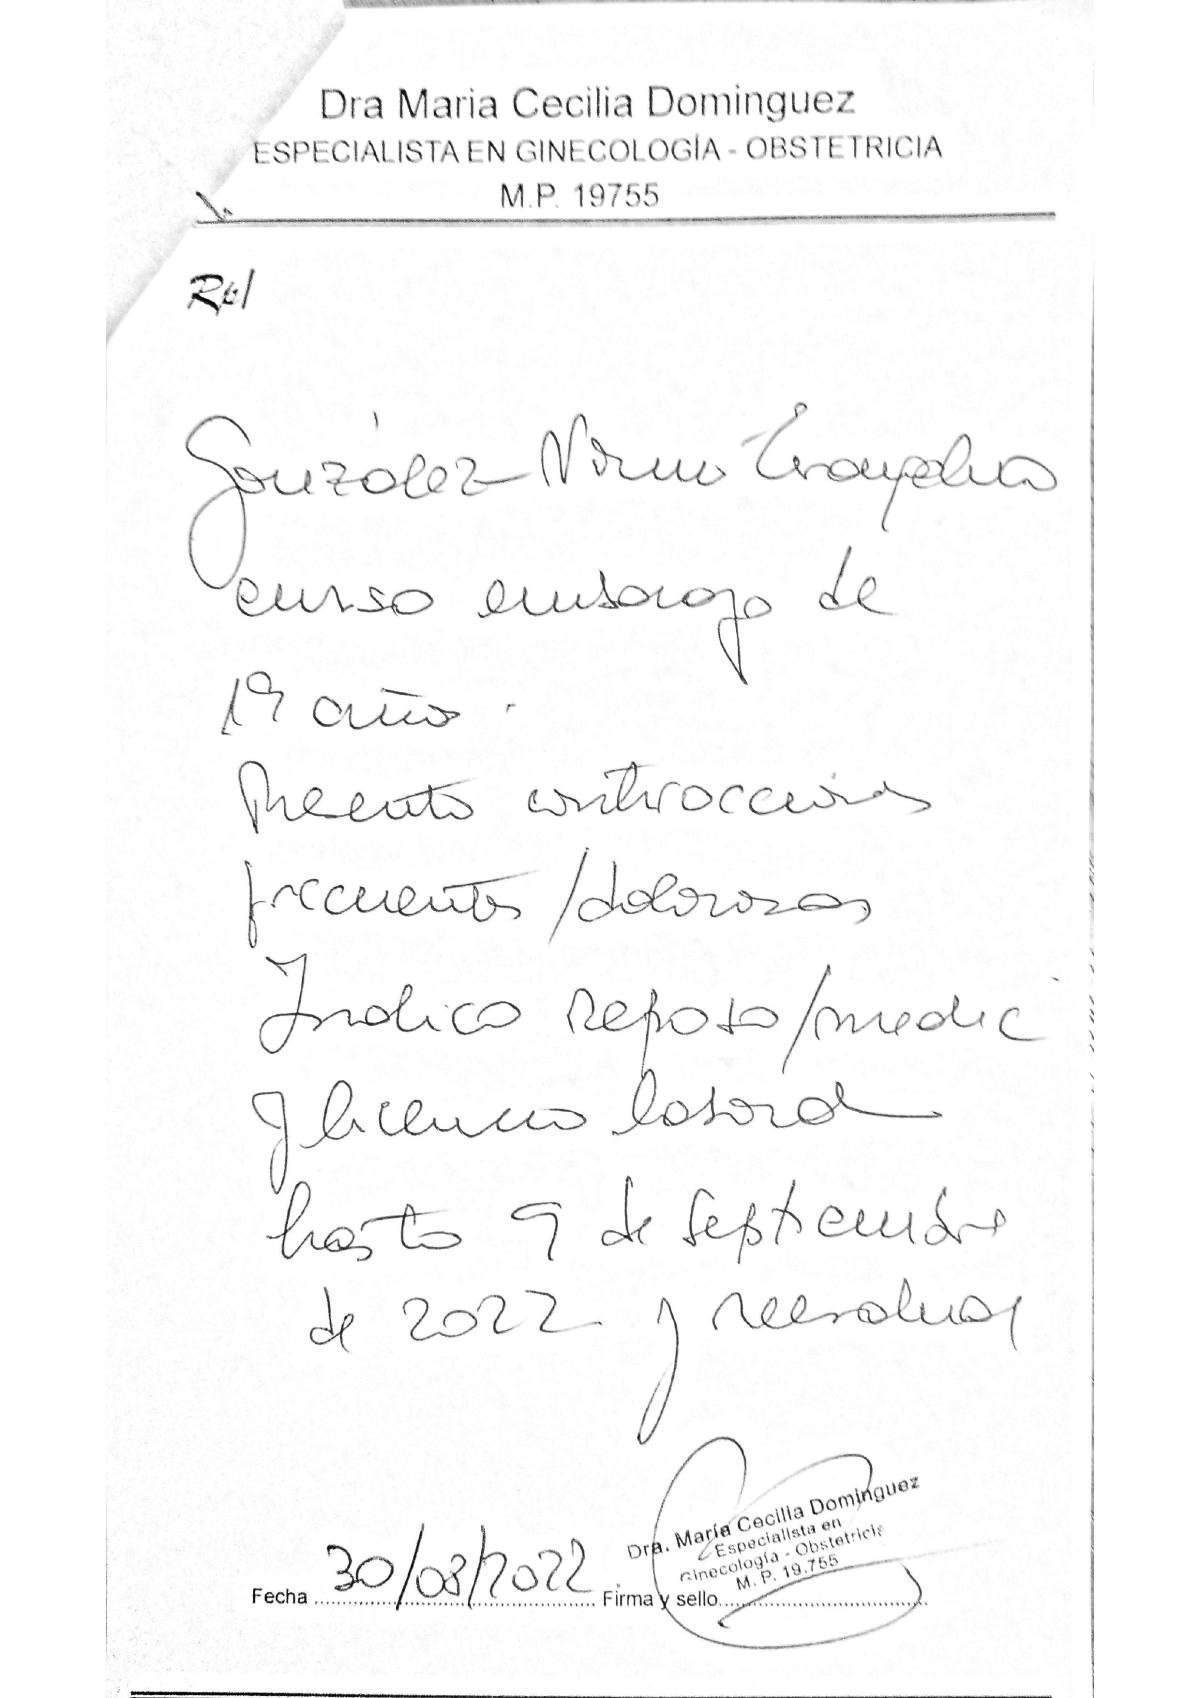 Dra Maria Cecilia Dominguez
ESPECIALISTA EN GINECOLOGÍA - OBSTETRICIA
M.P. 19755
Rp/
González
curso embarazo de
19
Presenta contracciones
frecuentes / dolorosas
Indico reposo/medic
y licencia laboral
hasta 9 de septiembre
de 2022 y reevaluar
Dra. María Cecilia Dominguez
Especialista en
Ginecología - Obstetricia
M. P. 19.755
Fecha 30/08/2022 Firma y sello